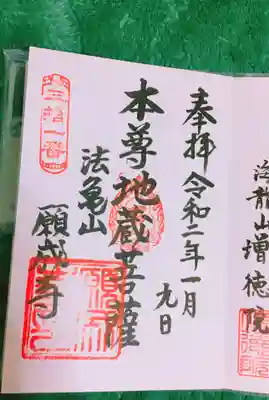 奉拝 令和二年一月
九日
本尊地蔵菩薩
法亀山
願成寺
海龍山増徳院